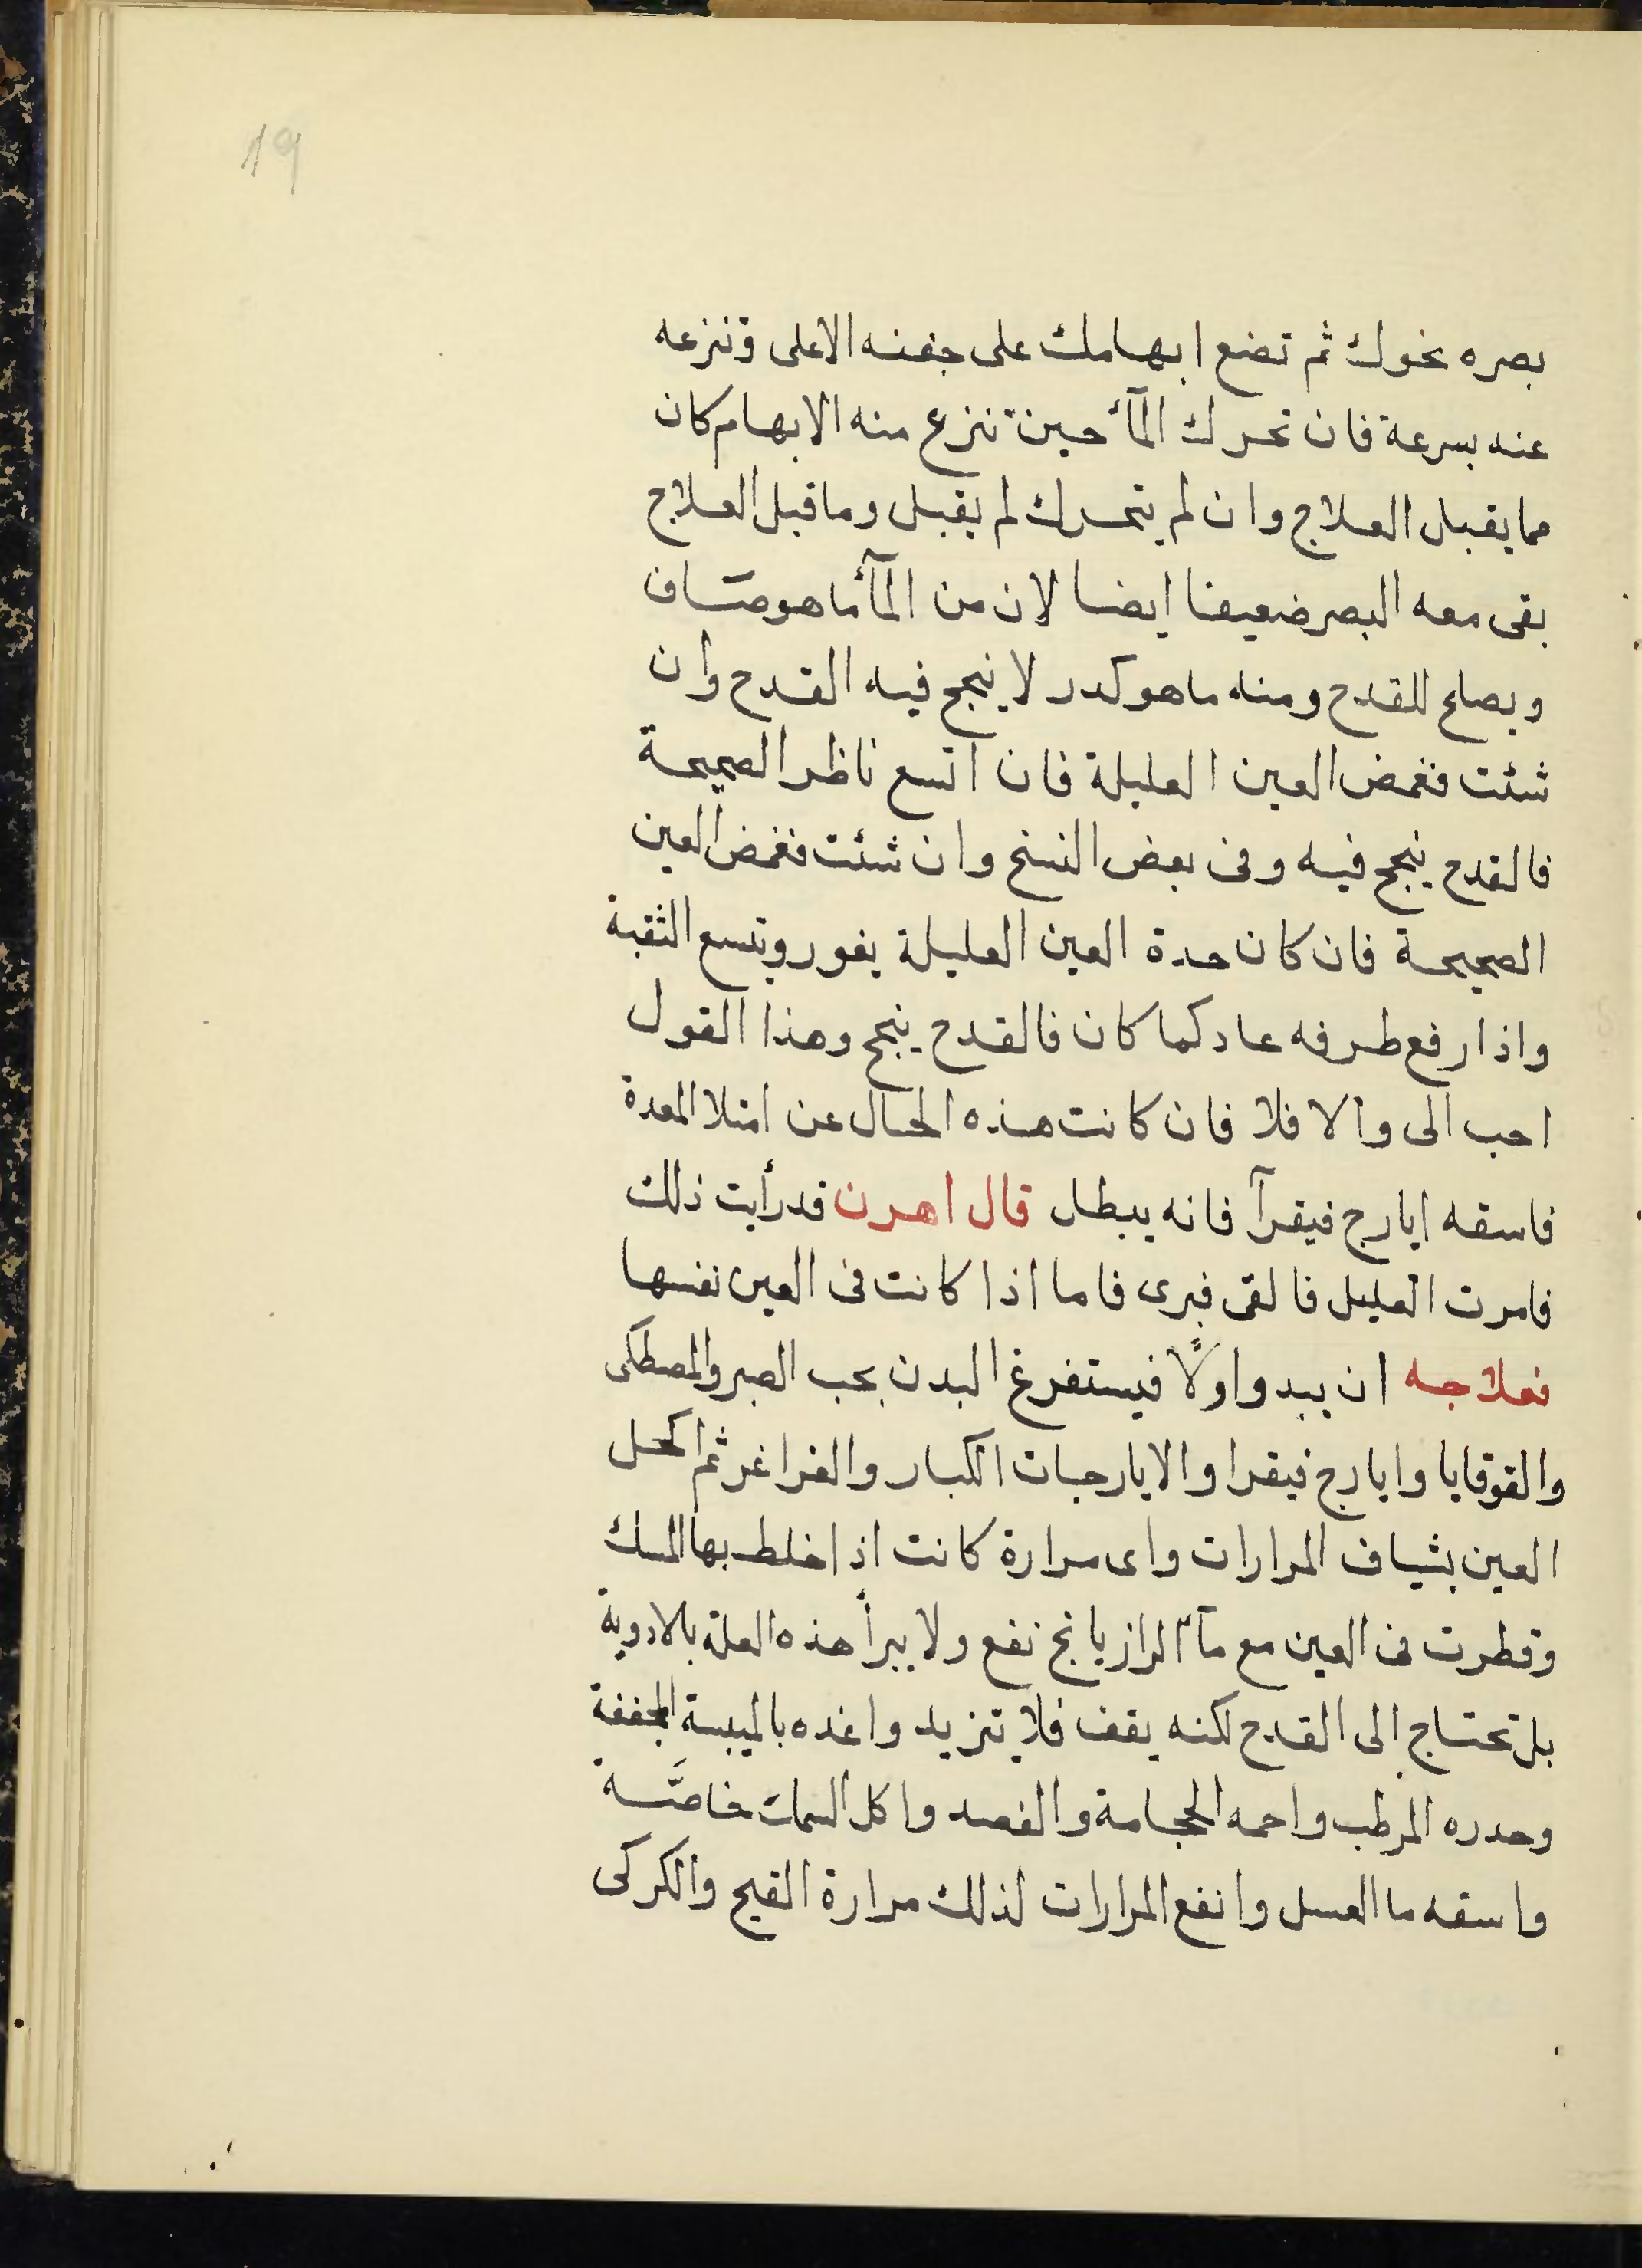 19
بصره نحوك ثم تضع ابهامك على جفنه الاعلى وتنزعه
عنه بسرعة فان تحرك المآء حين تنزع منه الابهام كان
مما يقبل العلاج وان لم يتحرك لم يقبل وما قبل العلاج
بقى معه البصر ضعيفا ايضا لان من المآء ما هو صاف
ويصلح للقدح ومنه ما هو كدر لا ينجح فيه القدح وان
شئت فغمض العين العليلة فان اتسع ناظر الصحيحة
فالقدح ينجح فيه وفى بعض النسخ وان شئت فغمض العين
الصحيحة فان كان حدة العين العليلة يغور وتتسع الثقبة
واذا رفع طرفه عاد كما كان فالقدح ينجح وهذا القول
احب الى والا فلا فان كانت هذه الحال عن امتلا المعدة
فاسقه ايارج فيقرآ فانه يبطل قال اهرن قد رأيت ذلك
فامرت العليل فالقى فبرى فاما اذا كانت فى العين نفسها
فعلاجه ان يبدو اولًا فيستفرغ البدن بحب الصبر والمصطكى
والقوقايا وايارج فيقرا والايارجات الكبار والغراغر ثم اكحل
العين بشياف المرارات واى مرارة كانت اذا خلط بها المسك
وقطرت فى العين مع مآء الرازيانج نفع ولا يبرأ هذه العلة بالادوية
بل تحتاج الى القدح لكنه يقف فلا تزيد واغده بالميبسة المجففة
وحدره المرطب واحمه الحجامة والفصد واكل السمك خاصَّة
واسقه ما العسل وانفع المرارات لذلك مرارة القبج والكركى